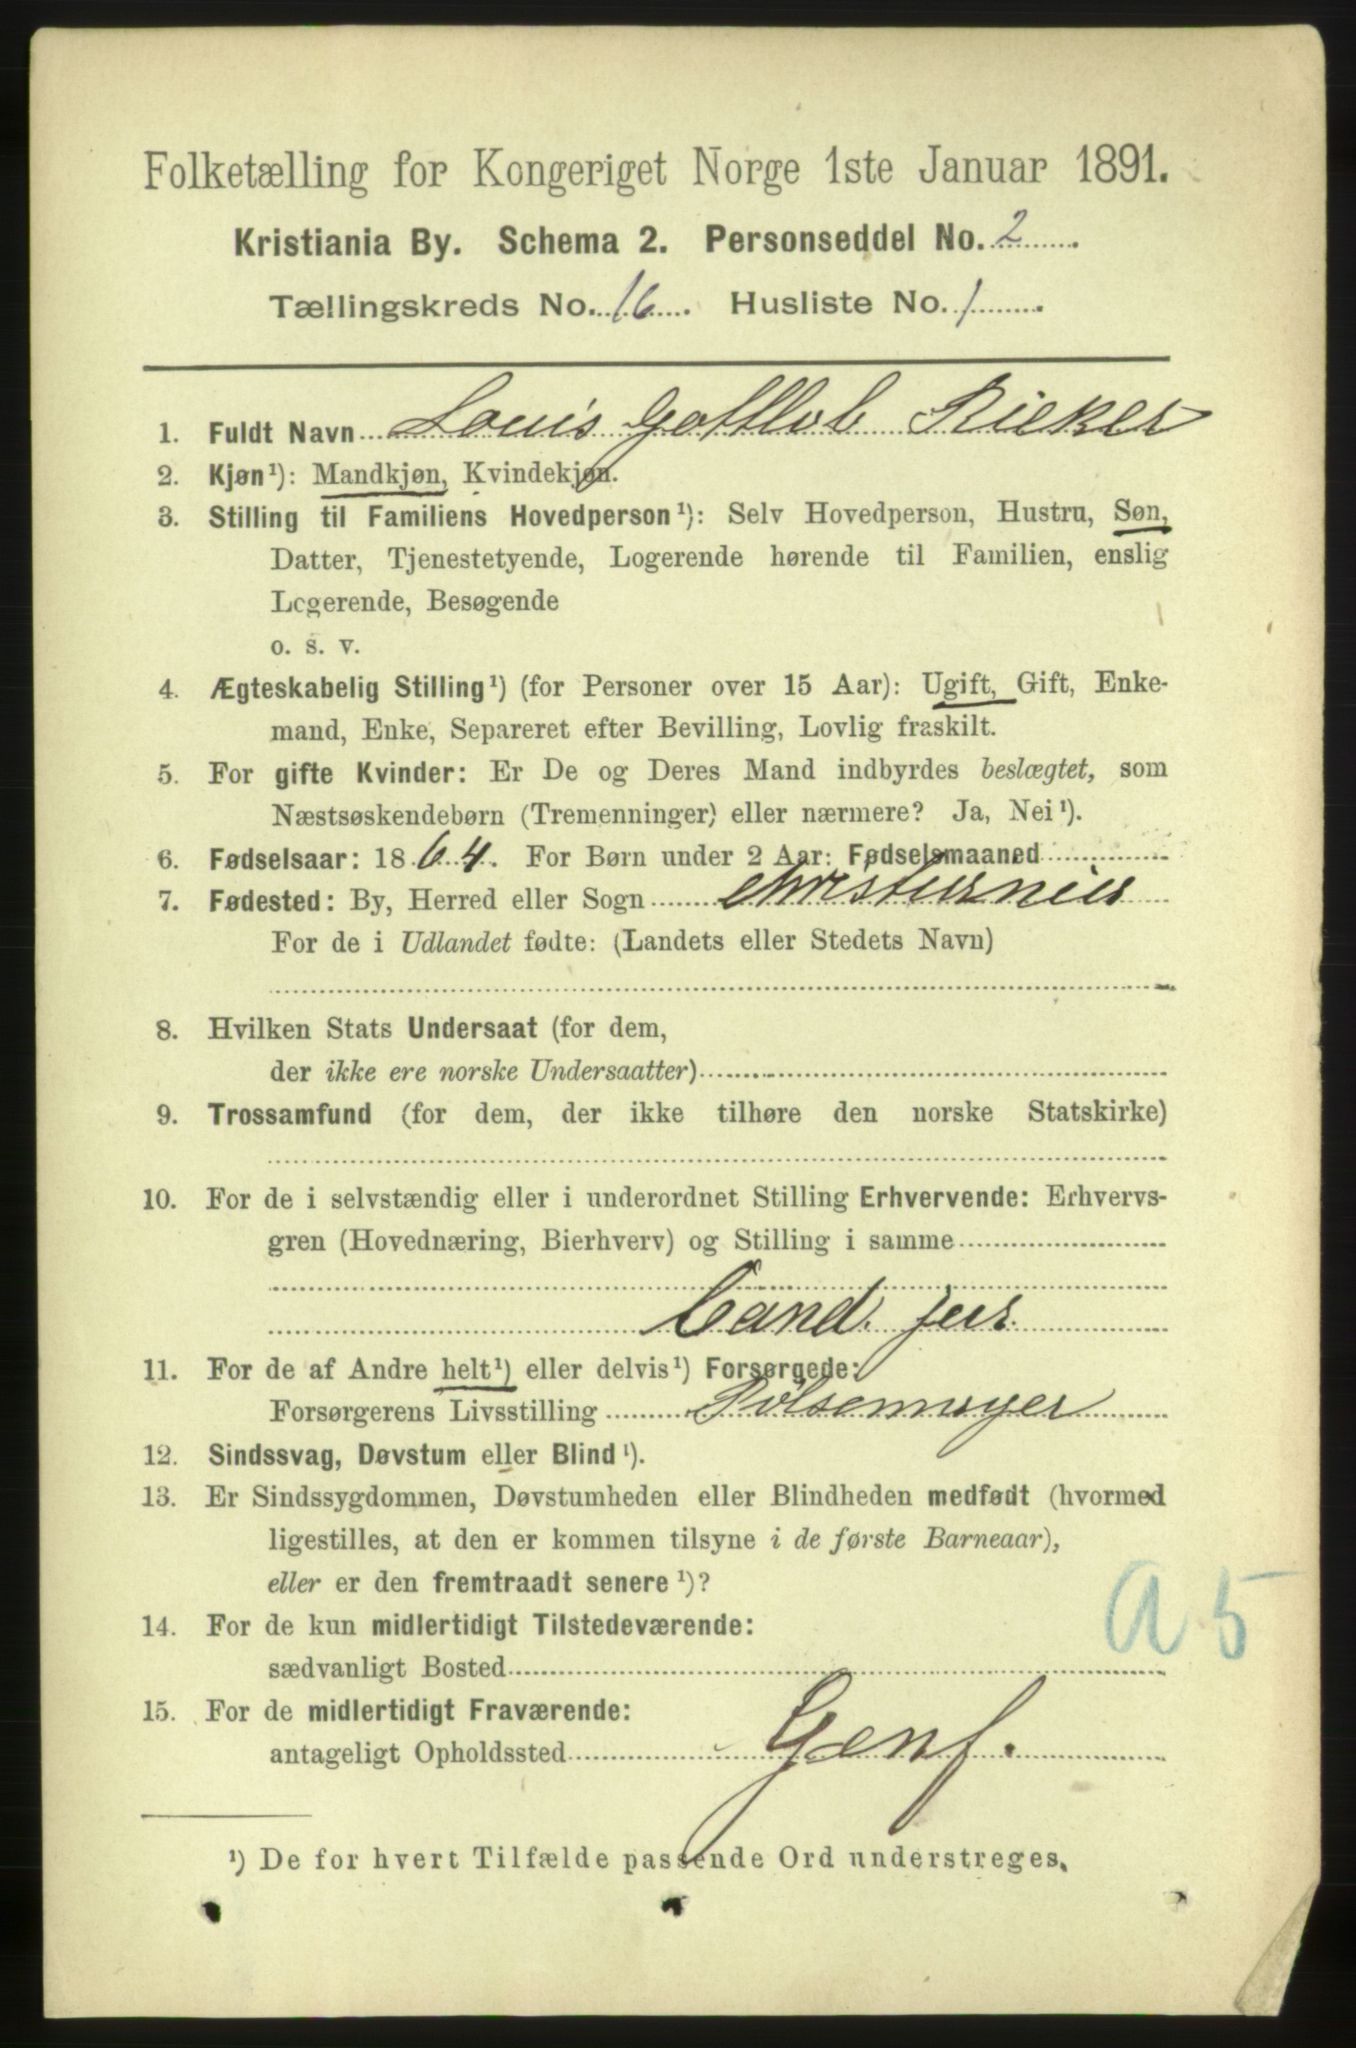 Folketælling for Kongeriget Norge 1ste Januar 1891.
Kristiania By. Schema 2. Personseddel No. 2.
Tællingskreds No. 16. Husliste No. 1.
1. Fuldt Navn Louis Gottlob Rieker
2. Kjøn¹): Mandkjøn, Kvindekjøn.
3. Stilling til Familiens Hovedperson¹): Selv Hovedperson, Hustru, Søn,
Datter, Tjenestetyende, Logerende hørende til Familien, enslig
Logerende, Besøgende
o. s. v.
4. Ægteskabelig Stilling¹) (for Personer over 15 Aar): Ugift, Gift, Enke-
mand, Enke, Separeret efter Bevilling, Lovlig fraskilt.
5. For gifte Kvinder: Er De og Deres Mand indbyrdes beslægtet, som
Næstsøskendebørn (Tremenninger) eller nærmere? Ja, Nei¹).
6. Fødselsaar: 1864. For Børn under 2 Aar: Fødselsmaaned
7. Fødested: By, Herred eller Sogn christiania
For de i Udlandet fødte: (Landets eller Stedets Navn)
8. Hvilken Stats Undersaat (for dem,
der ikke ere norske Undersaatter)
9. Trossamfund (for dem, der ikke tilhøre den norske Statskirke)
10. For de i selvstændig eller i underordnet Stilling Erhvervende: Erhvervs-
gren (Hovednæring, Bierhverv) og Stilling i samme
Cand. jur.
11. For de af Andre helt¹) eller delvis¹) Forsørgede:
Forsørgerens Livsstilling Pølsemager
12. Sindssvag, Døvstum eller Blind¹).
13. Er Sindssygdommen, Døvstumheden eller Blindheden medfødt (hvormed
ligestilles, at den er kommen tilsyne i de første Barneaar),
eller er den fremtraadt senere¹)?
a 5
14. For de kun midlertidigt Tilstedeværende:
sædvanligt Bosted
15. For de midlertidigt Fraværende:
antageligt Opholdssted Genf.
¹) De for hvert Tilfælde passende Ord understreges.